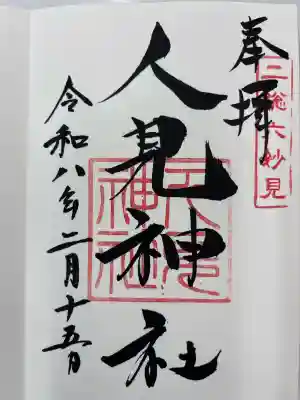 奉拝
二総六妙見
人見神社
人見神社
令和八年二月十五日